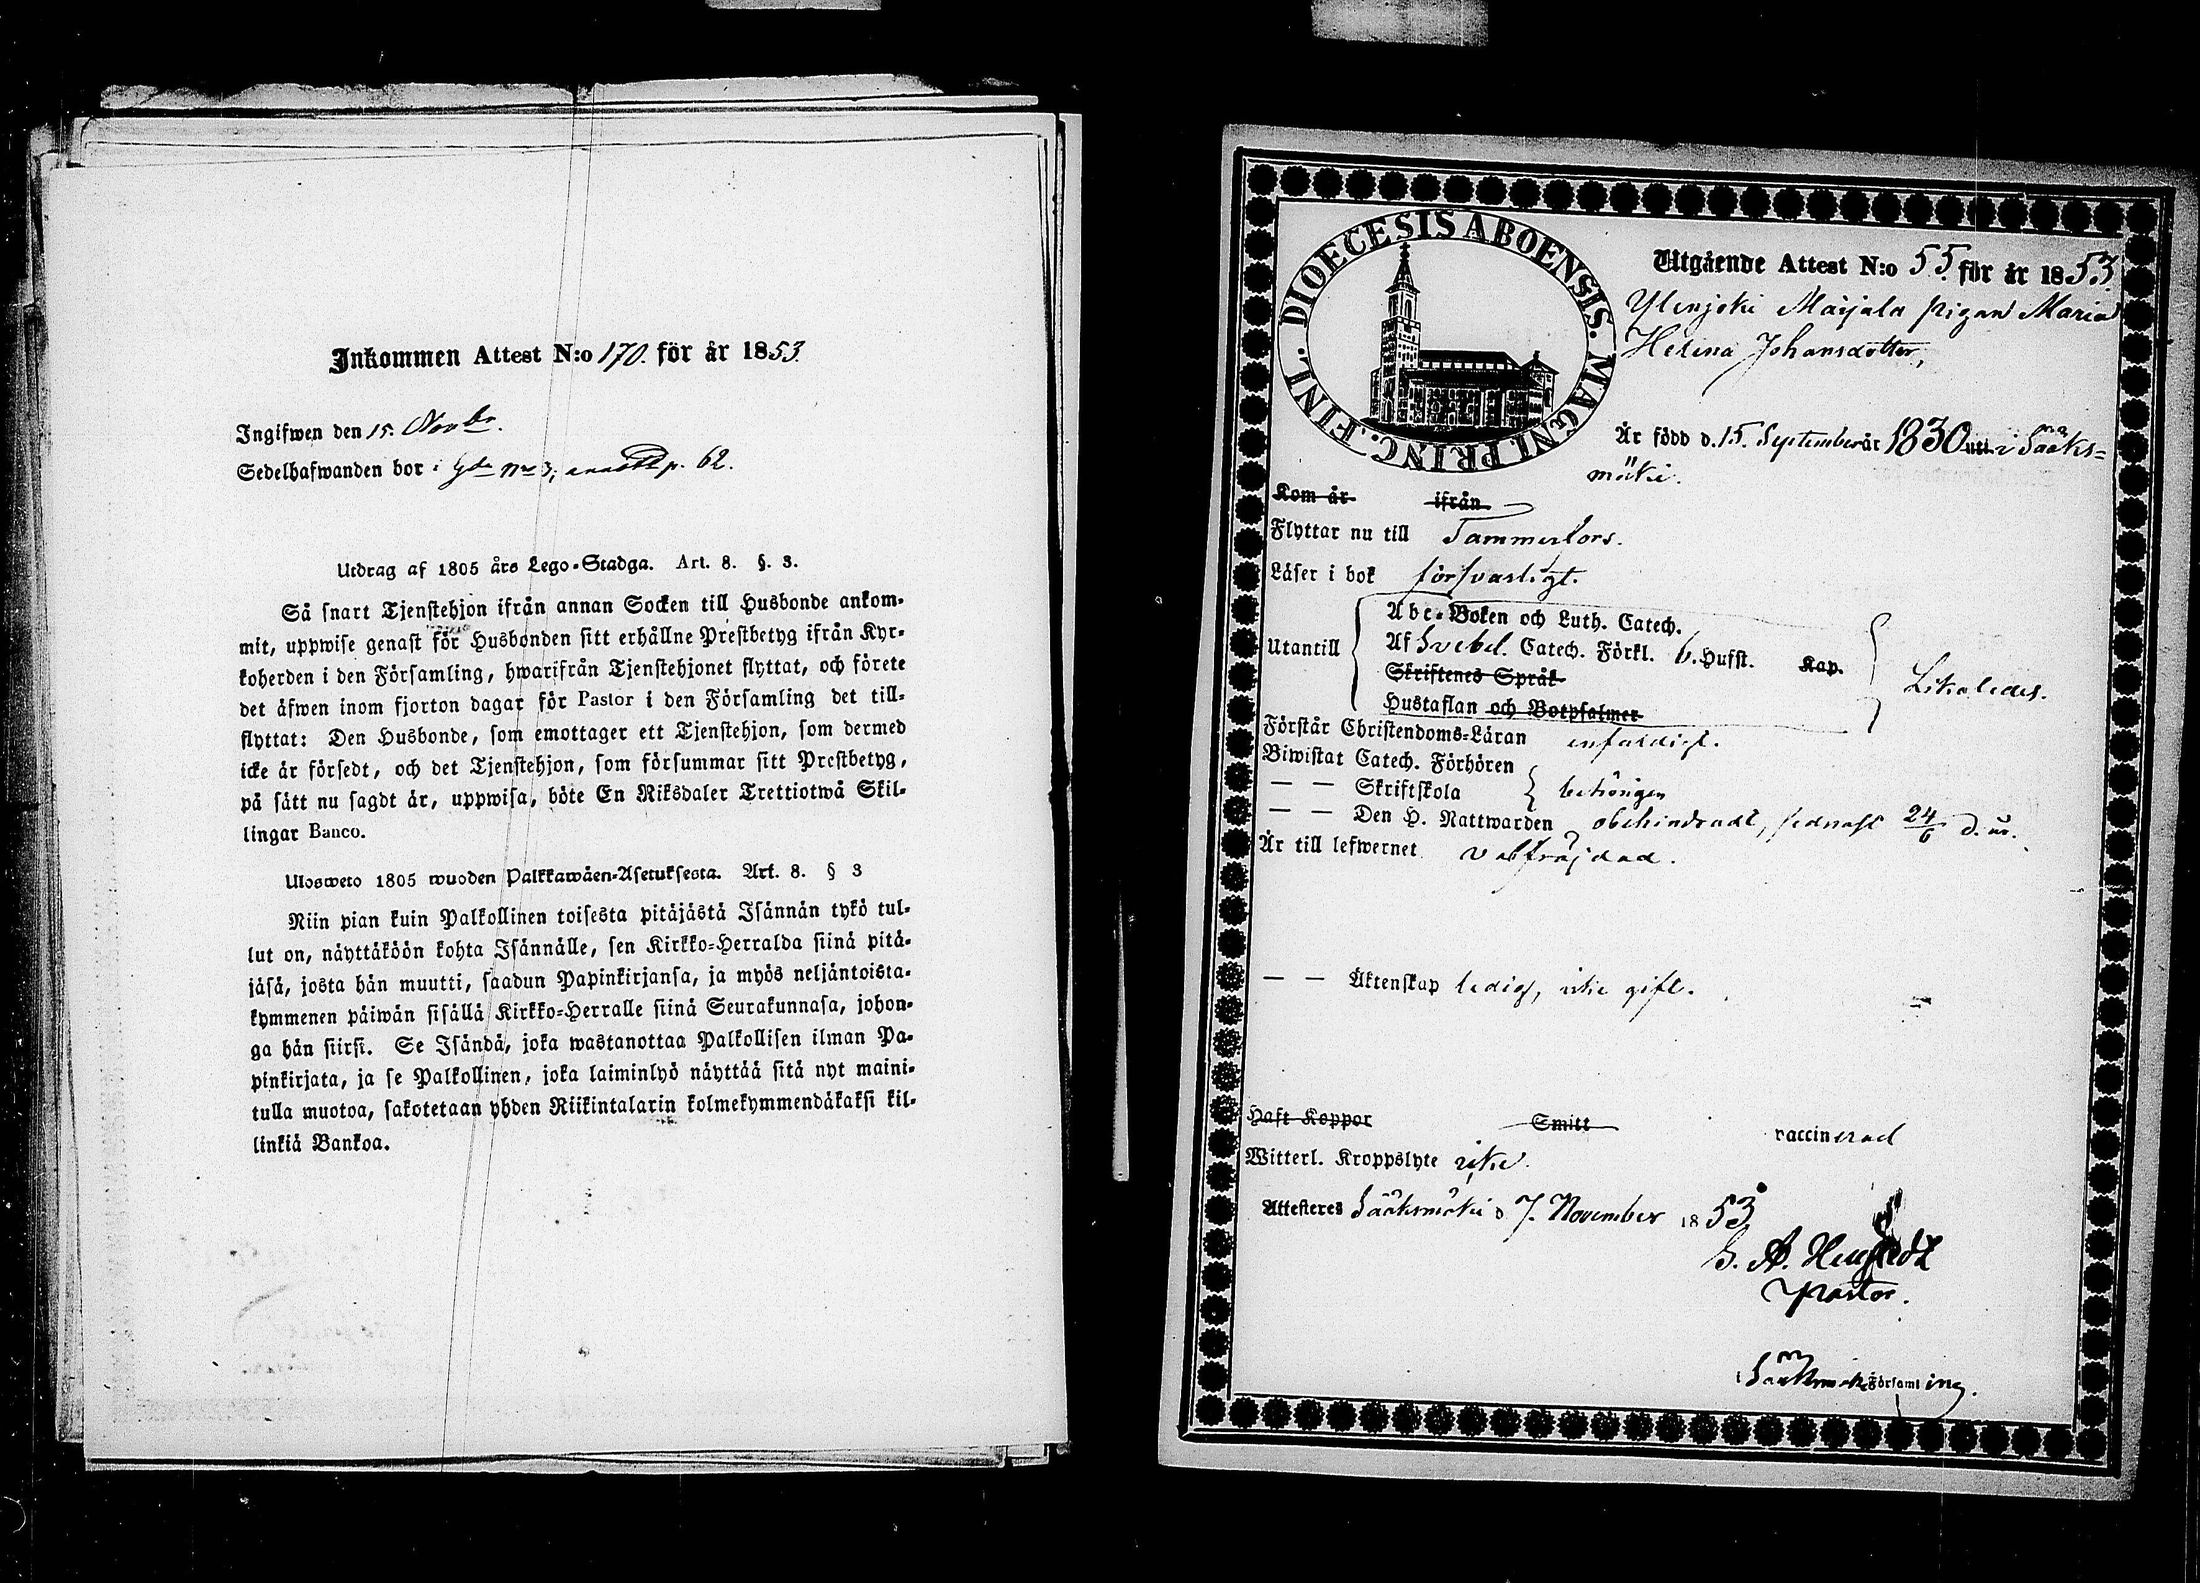 Inkommen Attest N:o 170. för år 1853
Ingifwen den 15. Novbr.
Sedelhafwanden bor i Gde No 3, p. 62.
Utdrag af 1805 års Lego-Stadga. Art. 8. §. 3.
Så snart Tjenstehjon ifrån annan Socken till Husbonde ankom-
mit, uppwise genast för Husbonden sitt erhållne Prestbetyg ifrån Kyr-
koherden i den Församling, hwarifrån Tjenstehjonet flyttat, och förete
det äfwen inom fjorton dagar för Pastor i den Församling det till-
flyttat: Den Husbonde, som emottager ett Tjenstehjon, som dermed
icke är försedt, och det Tjenstehjon, som försummar sitt Prestbetyg,
på sätt nu sagdt är, uppwisa, böte En Riksdaler Trettiotwå Skil-
lingar Banco.
Ulosweto 1805 wuoden Palkkawäen-Asetuksesta. Art. 8. § 3
Niin pian kuin Palkollinen toisesta pitäjästä Isännän tykö tul-
lut on, näyttäköön kohta Isännälle, sen Kirkko-Herralda siinä pitä-
jäsä, josta hän muutti, saadun Papinkirjansa, ja myös neljäntoista-
kymmenen päiwän sisällä Kirkko-Herralle siinä Seurakunnasa, johon-
ga hän siirsi. Se Isändä, joka wastanottaa Palkollisen ilman Pa-
pinkirjata, ja se Palkollinen, joka laiminlyö näyttää sitä nyt maini-
tulla muotoa, sakotetaan yhden Riikintalarin kolmekymmendäkaksi kil-
linkiä Bankoa.
DIOECESIS ABOENSIS. MAGNI PRINC. FINL.
Utgående Attest N:o 55. för år 1853
Ylenjoki Maijala pigan Maria
Helena Johansdotter,
Är född d. 15. September år 1830 uti i Sääks-
mäki.
Kom år ifrån
Flyttar nu till Tammerfors.
Läser i bok försvarligt.
Utantill
Abc-Boken och Luth. Catech.
Af Svebel. Catech. Förkl. 6. Hufst. Kap.
Skriftenes Språk
Hustaflan och Botpsalmer
Likaledes.
Förstår Christendoms-Läran enfaldigt.
Biwistat Catech. Förhören
— — Skriftskola behörigen
— — Den H. Nattwarden obehindradt, sednast 24/6 d. år.
Är till lefwernet välfräjdad.
— — Äktenskap ledig, icke gift.
Haft Koppor Smitt vaccinerad
Witterl. Kroppslyte icke.
Attesteres Sääksmäki d 7. November 1853
Pastor.
i Sääksmäki Församling.